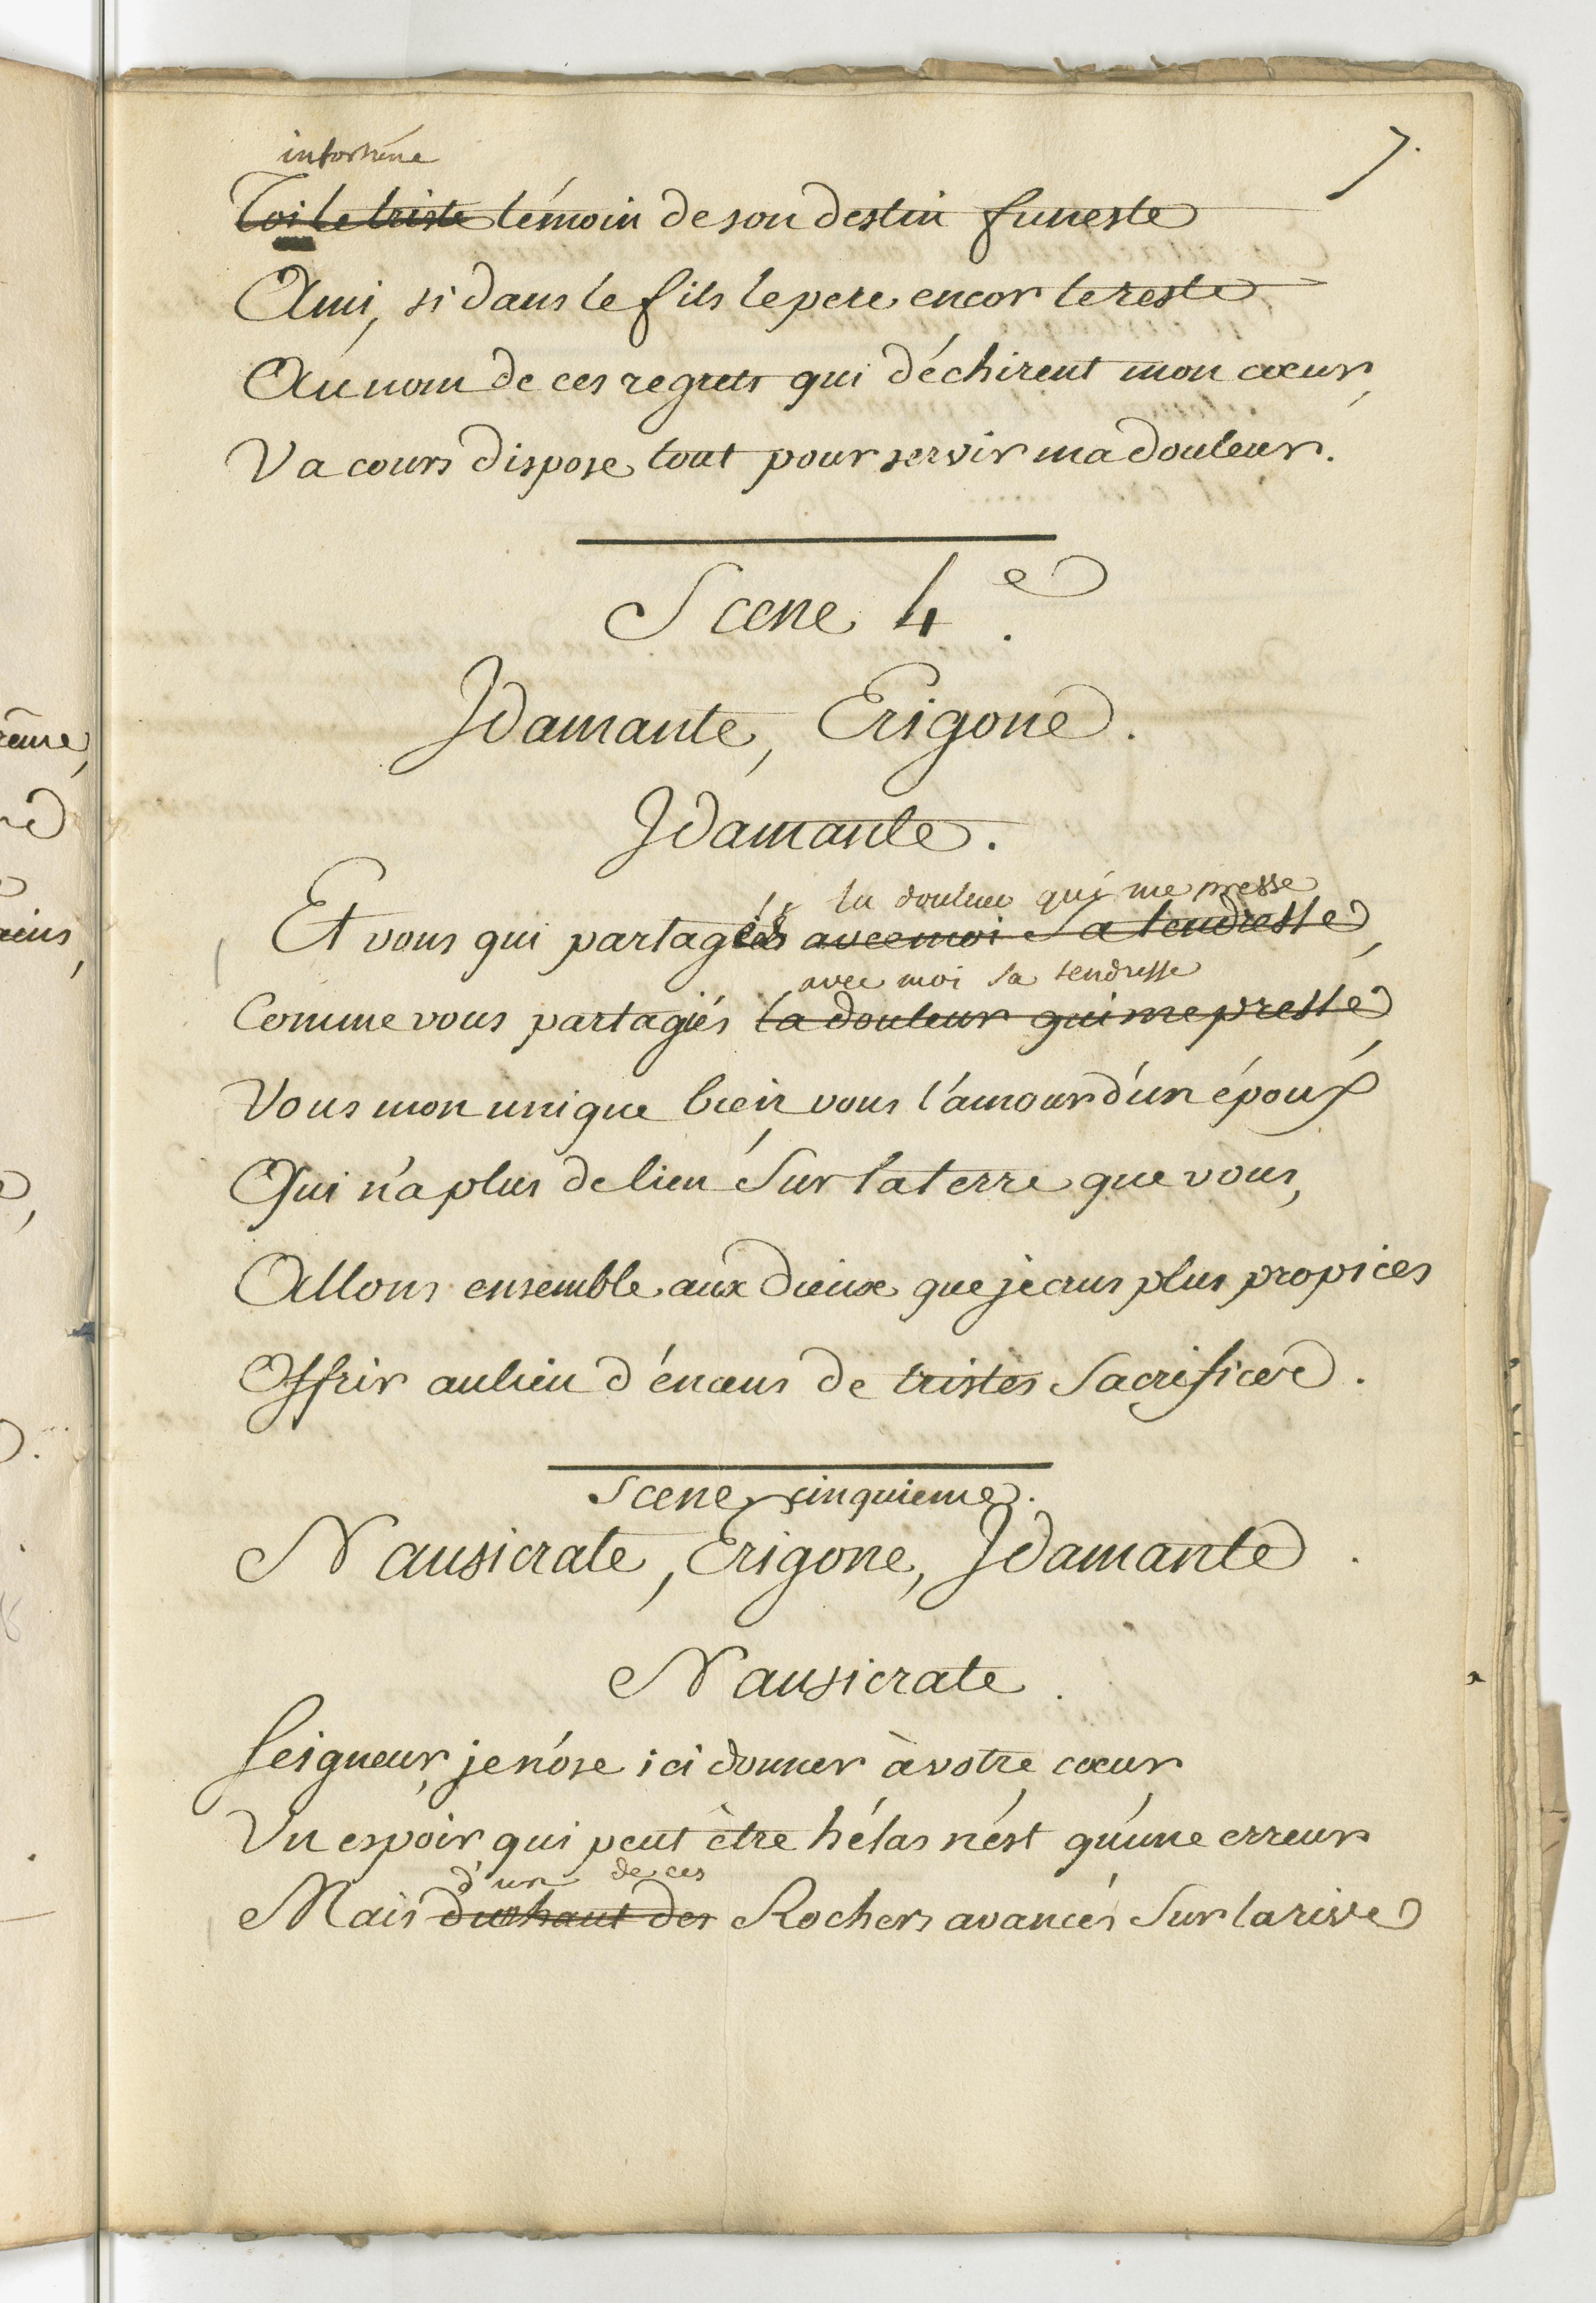 7.
infortuné
Toi le triste témoin de son destin funeste
Ami, si dans le fils le pere encor te reste
Au nom de ces regrets qui déchirent mon cœur,
Va cours dispose tout pour servir ma douleur.
Scene 4e.
Idamante, Erigone.
Idamante.
la douleur qui me presse
Et vous qui partagiés avec moi sa tendresse,
avec moi sa tendresse
Comme vous partagiés la douleur qui me presse,
Vous mon unique bien, vous l'amour d'un époux
Qui n'a plus de lien sur la terre que vous,
Allons ensemble aux dieux que je crus plus propices
Offrir au lieu d'encens de tristes sacrifices.
Scene cinquieme.
Nausicrate, Erigone, Idamante.
Nausicrate.
Seigneur, je n'ose ici donner à votre cœur
Un espoir, qui peut être hélas n'est qu'une erreur
d'un de ces
Mais du haut des Rochers avancés sur la rive